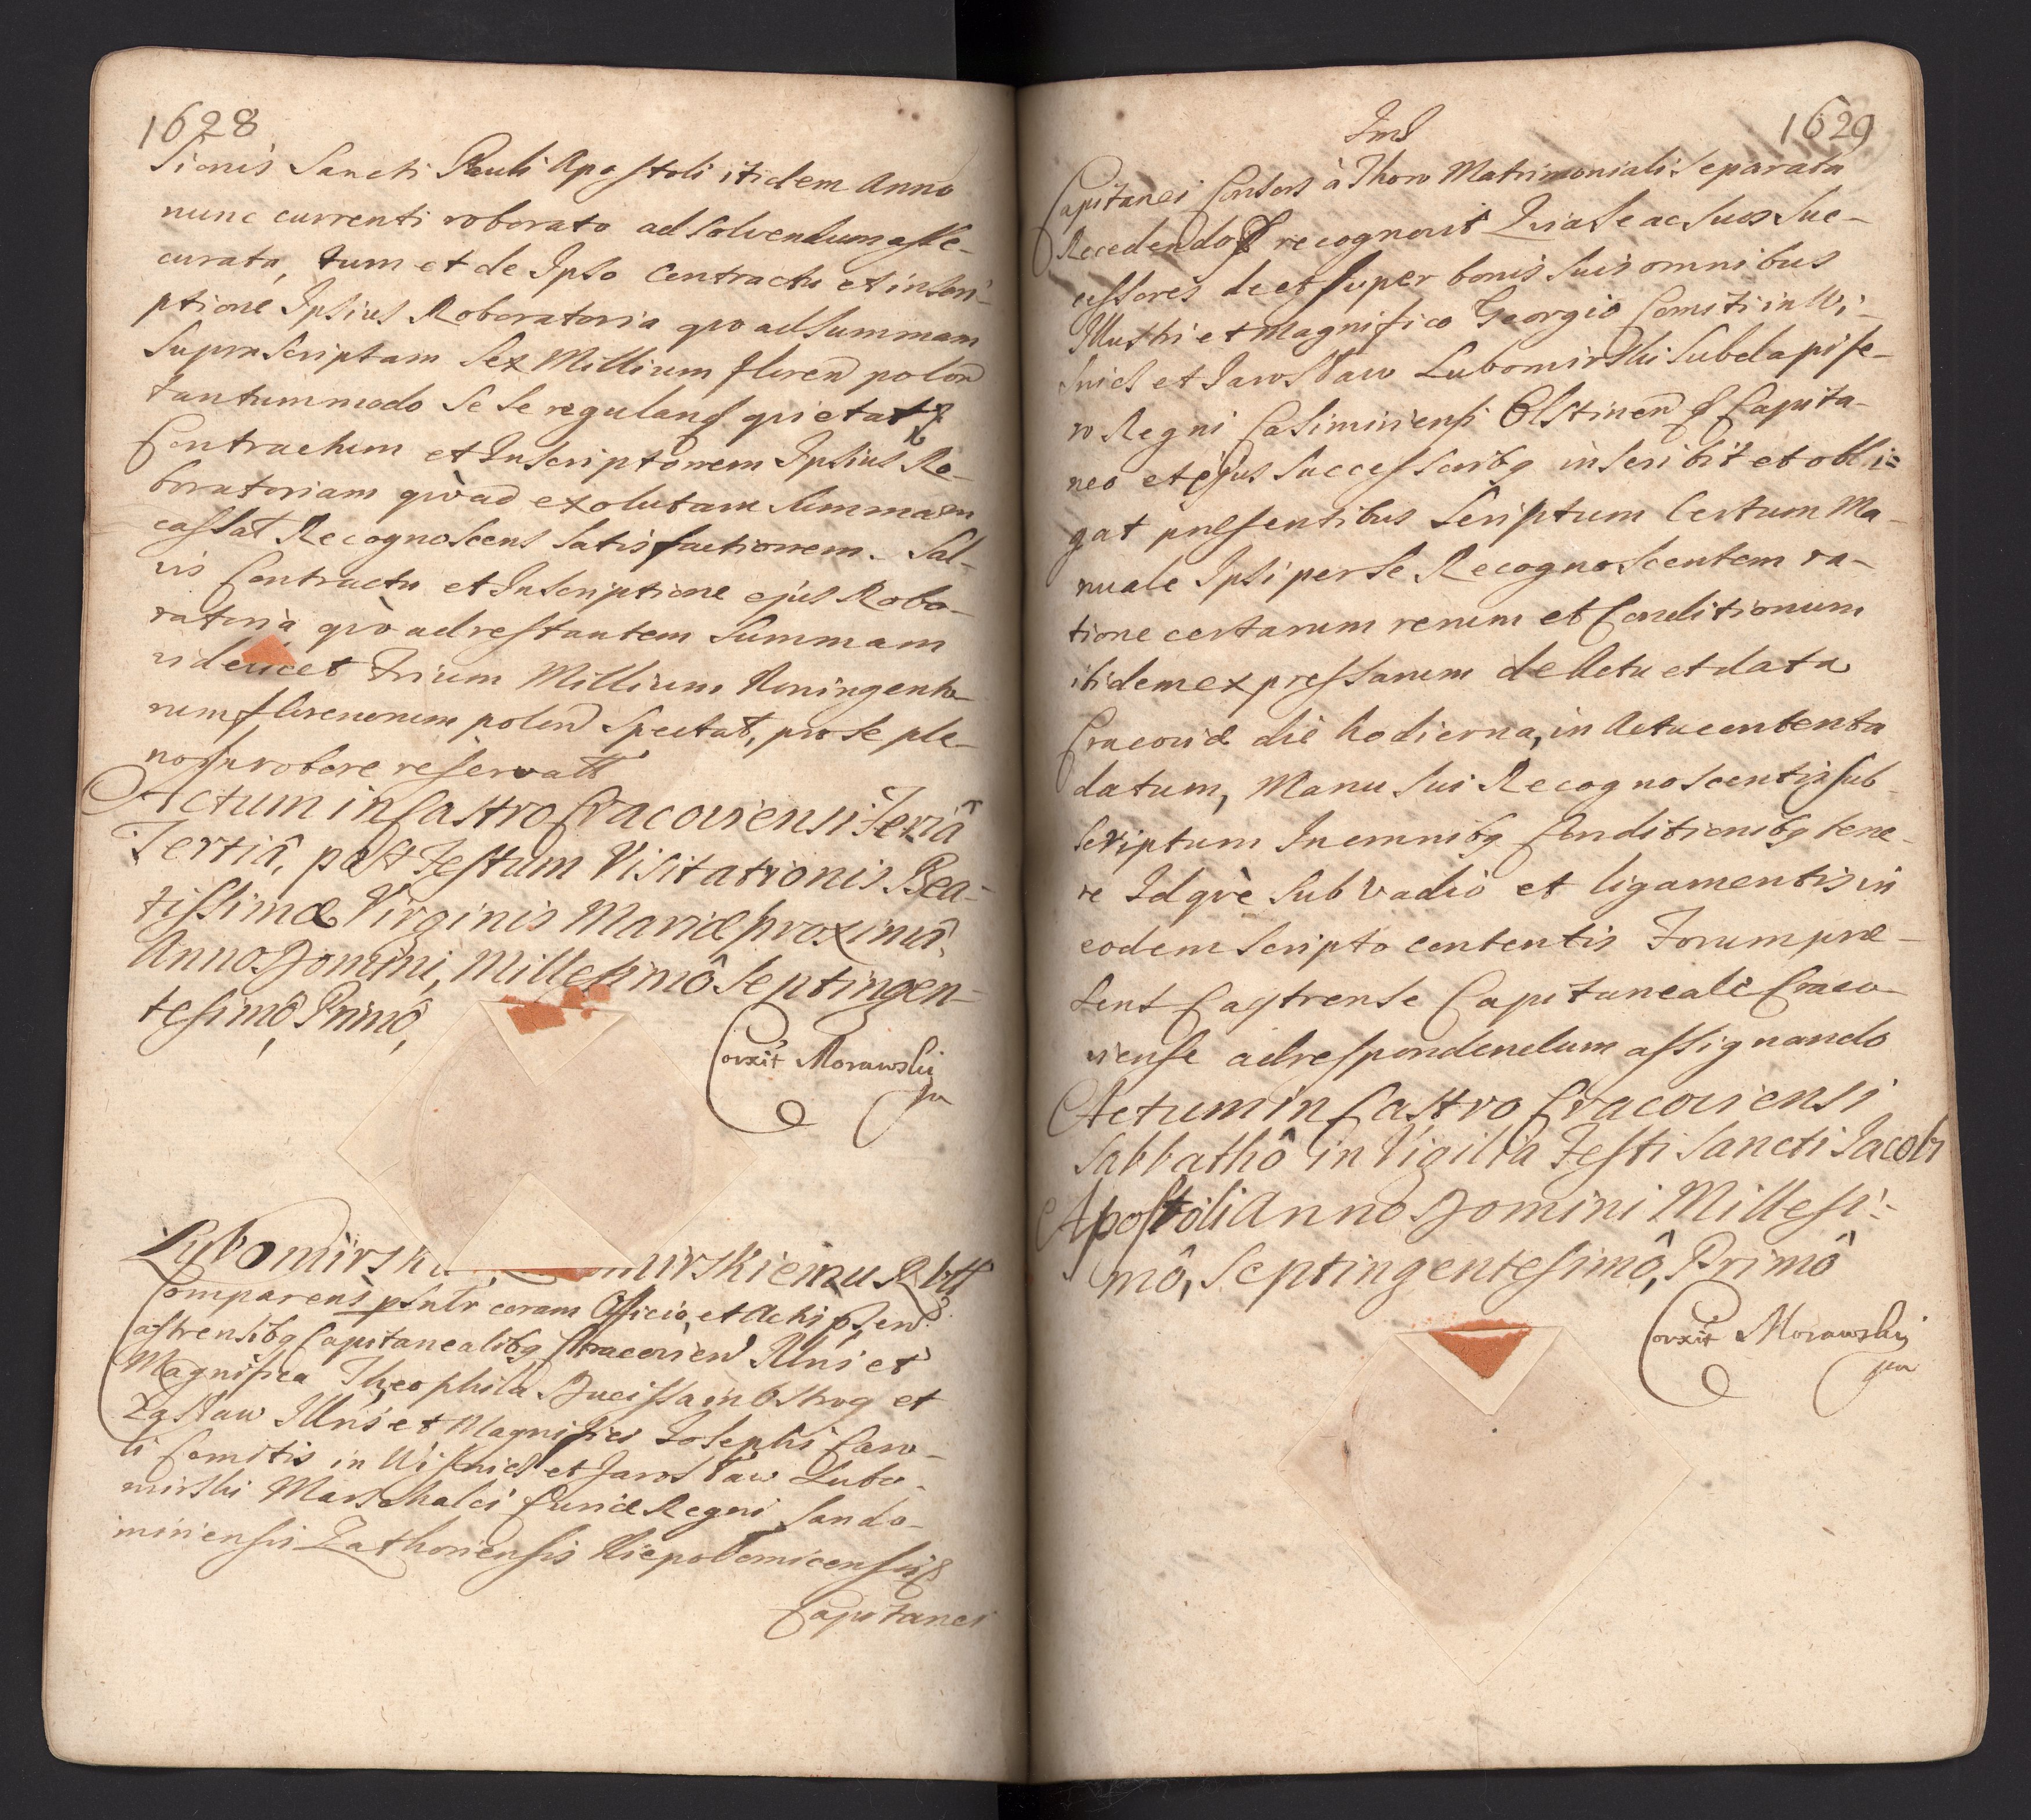 1628
sionis Sancti Pauli Apostoli itidem Anno
nunc currenti roborato ad solvendum asse-
curata, tum et de Ipso Contractu et inscri-
ptione Ipsius Roboratoria quo ad Summam
Suprascriptam Sex Millium floren polon
tantummodo Se Se regulans quietat
Contractum et Inscriptionem Ipsius Ro-
boratoriam quò ad exolutam Summam
cassat Recognoscens Satisfactionem. Sal-
vis Contractu et Inscriptione ejus Robo-
ratoria quò ad restantem Summam
videlicet Trium Millium Noningento-
rum florenorum polon Spectat, pro se ple-
no in robore reservatt
Actum in Castro Cracoviensi Feriâ
Tertiâ, post Festum Visitationis Bea-
tissimæ Virginis Mariæ proximâ.
Anno Domini, Millesimô Septingen-
tesimô, Primô,
Corxit Morawski
Lubomirski mirskiemu Rbtt
Comparens psntr coram Officio, et Actis psen
Castrensibq Capitanealibq Cracovien Illris et
Magnifica Theophila Ducissa in Ostrog et
Zasław Illris et Magnifici Josephi Caro-
li Comitis in Wisnicz et Jarosław Lubo-
mirski Marschalci Curiæ Regni Sando-
miriensis Zathoriensis Niepolomicensis
Capitanei
1629
Capitanei Consors à Thoro Matrimoniali Separata
Recedendo recognovit Quia Se ac Suos Suc-
cessores de et super bonis Suis omnibus
Illustri et Magnifico Georgio Comiti in Wi-
snicz et Jarosław Lubomirski Subdapife-
ro Regni Casimiriensi Olstinen Capita-
neo et ejus Successoribq inscribit et obli=
gat præsentibus Scriptum Certum Ma-
nuale Ipsi per Se Recognoscentem ra-
tione certarum rerum et Conditionum
ibidem expressarum de Actu et data
Cracoviæ die hodierna, in Actu contenta
datum, Manu Sui Recognoscentis sub-
scriptum In omnibq Conditionibq tene-
re Idqve Sub vadio et ligamentis in
eodem Scripto contentis Forum præ-
sens Castrense Capitaneale Craco-
viense ad respondendum assignando
Actum in Castro Cracoviensi
Sabbathô in Vigilia Festi Sancti Jacobi
Apostoli Anno Domini Millesi-
mô, Septingentesimô, Primô
Corxit Morawski